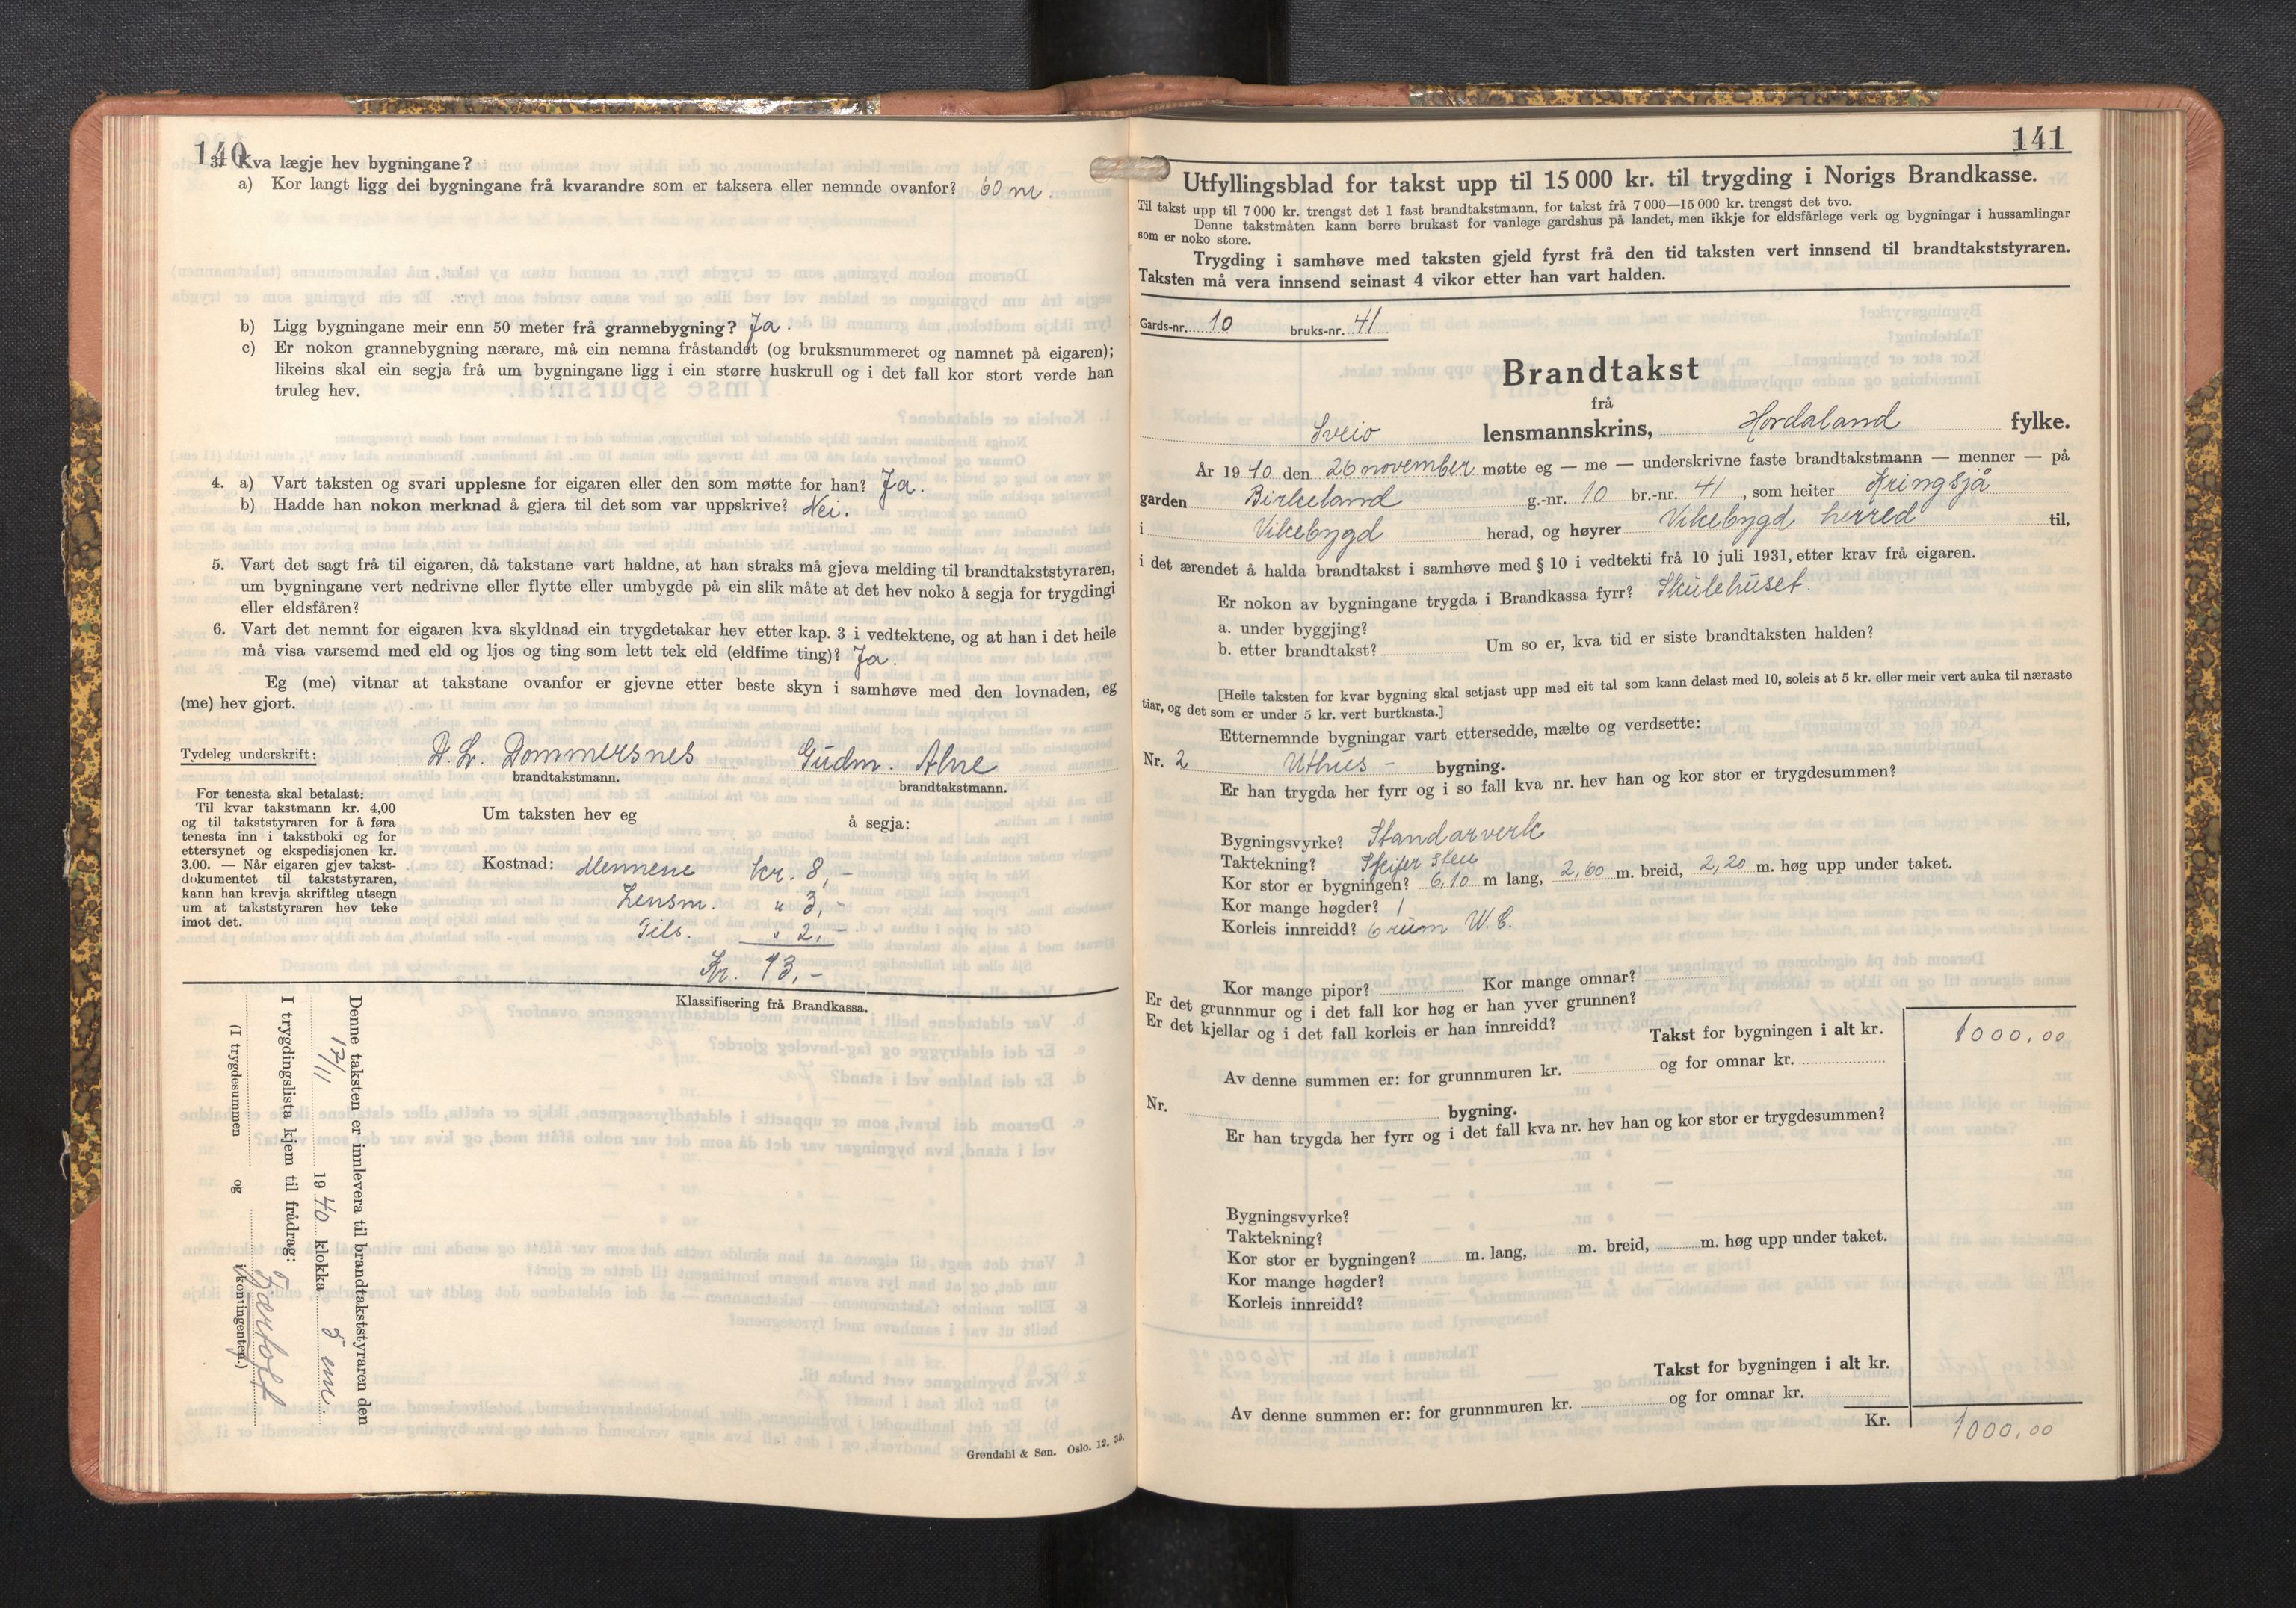 140
3. Kva lægje hev bygningane?
a) Kor langt ligg dei bygningane frå kvarandre som er taksera eller nemnde ovanfor? 60 m.
b) Ligg bygningane meir enn 50 meter frå grannebygning? Ja.
c) Er nokon grannebygning nærare, må ein nemna fråstandet (og bruksnummeret og namnet på eigaren);
likeins skal ein segja frå um bygningane ligg i ein større huskrull og i det fall kor stort verde han
truleg hev.
4. a) Vart taksten og svari upplesne for eigaren eller den som møtte for han? Ja.
b) Hadde han nokon merknad å gjera til det som var uppskrive? Nei.
5. Vart det sagt frå til eigaren, då takstane vart haldne, at han straks må gjeva melding til brandtakststyraren,
um bygningane vert nedrivne eller flytte eller umbygde på ein slik måte at det hev noko å segja for trygdingi
eller eldsfåren?
6. Vart det nemnt for eigaren kva skyldnad ein trygdetakar hev etter kap. 3 i vedtektene, og at han i det heile
må visa varsemd med eld og ljos og ting som lett tek eld (eldfime ting)? Ja.
Eg (me) vitnar at takstane ovanfor er gjevne etter beste skyn i samhøve med den lovnaden, eg
(me) hev gjort.
Tydeleg underskrift: D. L. Dommersnes Gudm. Alne
brandtakstmann. brandtakstmann.
For tenesta skal betalast:
Til kvar takstmann kr. 4,00
og til takststyraren for å føra
tenesta inn i takstboki og for
ettersynet og ekspedisjonen kr.
3.00. — Når eigaren gjev takst-
dokumentet til takststyraren,
kann han krevja skriftleg utsegn
um at takststyraren hev teke
imot det.
Um taksten hev eg å segja:
Kostnad: Mennene kr. 8,-
Lensm. " 3,-
Tils. " 2,-
Kr. 13,-
Klassifisering frå Brandkassa.
Denne taksten er innlevera til brandtakststyraren den
17/11 1940 klokka 5 em.
I trygdingslista kjem til frådrag:
(I trygdesummen og i kontingenten.)
Grøndahl & Søn. Oslo. 12. 35.
141
Utfyllingsblad for takst upp til 15 000 kr. til trygding i Norigs Brandkasse.
Til takst upp til 7 000 kr. trengst det 1 fast brandtakstmann, for takst frå 7 000—15 000 kr. trengst det tvo.
Denne takstmåten kann berre brukast for vanlege gardshus på landet, men ikkje for eldsfårlege verk og bygningar i hussamlingar
som er noko store.
Trygding i samhøve med taksten gjeld fyrst frå den tid taksten vert innsend til brandtakststyraren.
Taksten må vera innsend seinast 4 vikor etter han vart halden.
Gards-nr. 10 bruks-nr. 41
Brandtakst
frå
Sveio lensmannskrins, Hordaland fylke.
År 1940 den 26 november møtte eg — me — underskrivne faste brandtakstmann — menner — på
garden Birkeland g.-nr. 10 br.-nr. 41, som heiter Kringsjå
i Vikebygd herad, og høyrer Vikebygd herred til,
i det ærendet å halda brandtakst i samhøve med § 10 i vedtekti frå 10 juli 1931, etter krav frå eigaren.
Er nokon av bygningane trygda i Brandkassa fyrr? Skulehuset.
a. under byggjing?
b. etter brandtakst? Um so er, kva tid er siste brandtaksten halden?
[Heile taksten for kvar bygning skal setjast upp med eit tal som kann delast med 10, soleis at 5 kr. eller meir vert auka til næraste
tiar, og det som er under 5 kr. vert burtkasta.]
Etternemnde bygningar vart ettersedde, mælte og verdsette:
Nr. 2 Uthus - bygning.
Er han trygda her fyrr og i so fall kva nr. hev han og kor stor er trygdesummen?
Bygningsvyrke? Standarverk
Taktekning? Skifer
Kor stor er bygningen? 6,10 m lang, 2,60 m. breid, 2,20 m. høg upp under taket.
Kor mange høgder? 1
Korleis innreidd? 6 rum W.C.
Kor mange pipor? Kor mange omnar?
Er det grunnmur og i det fall kor høg er han yver grunnen?
Er det kjellar og i det fall korleis er han innreidd?
Takst for bygningen i alt kr. 1000,00
Av denne summen er: for grunnmuren kr. og for omnar kr.
Nr. bygning.
Er han trygda her fyrr og i det fall kva nr. hev han og kor stor er trygdesummen?
Bygningsvyrke?
Taktekning?
Kor stor er bygningen? m. lang, m. breid, m. høg upp under taket.
Kor mange høgder?
Korleis innreidd?
Takst for bygningen i alt kr.
Av denne summen er: for grunnmuren kr. og for omnar kr.
Kr. 1000,00